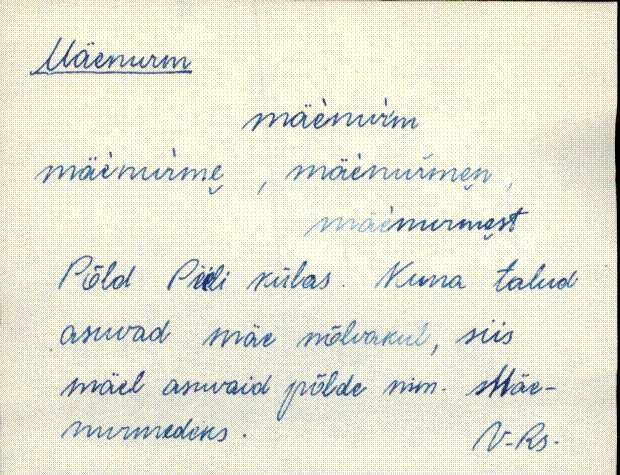 Mäenurm
mäènurm
mäènurme̮, mäènurmen,
mäènurmest
Põld Piidi külas. Kuna talud
asuvad mäe nõlvakul, siis
mäel asuvaid põlde nim. Mäe-
nurmedeks.
V-Rs.